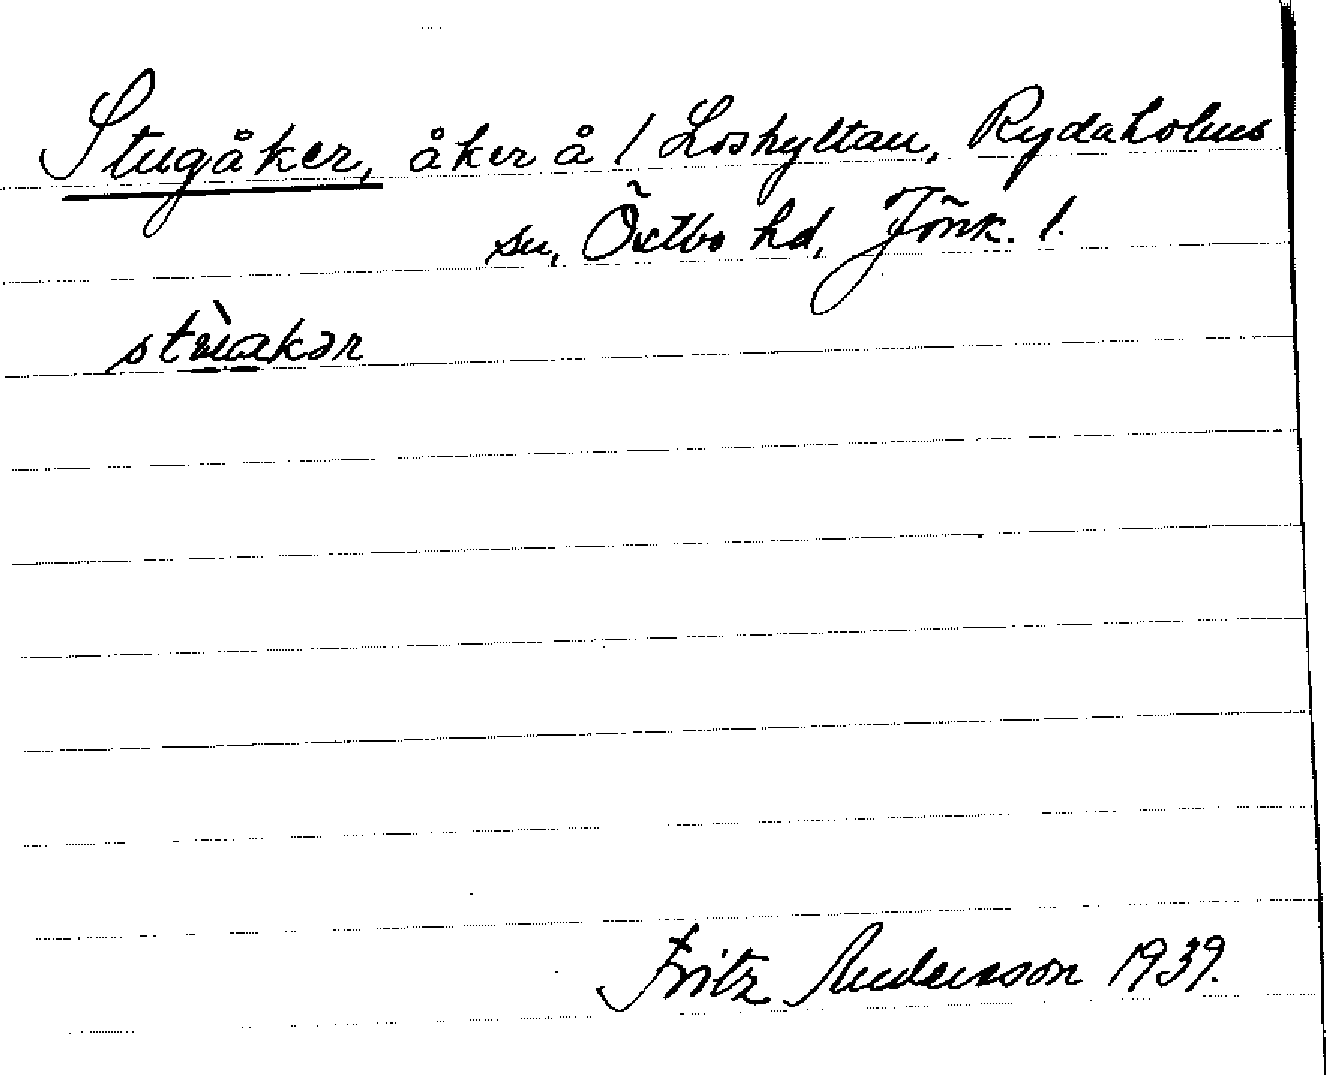 Stugåker, åker å / Loshyltan, Rydaholms
sn, Östbo hd, Jönk. l.
stùakər
Fritz Andersson 1939.